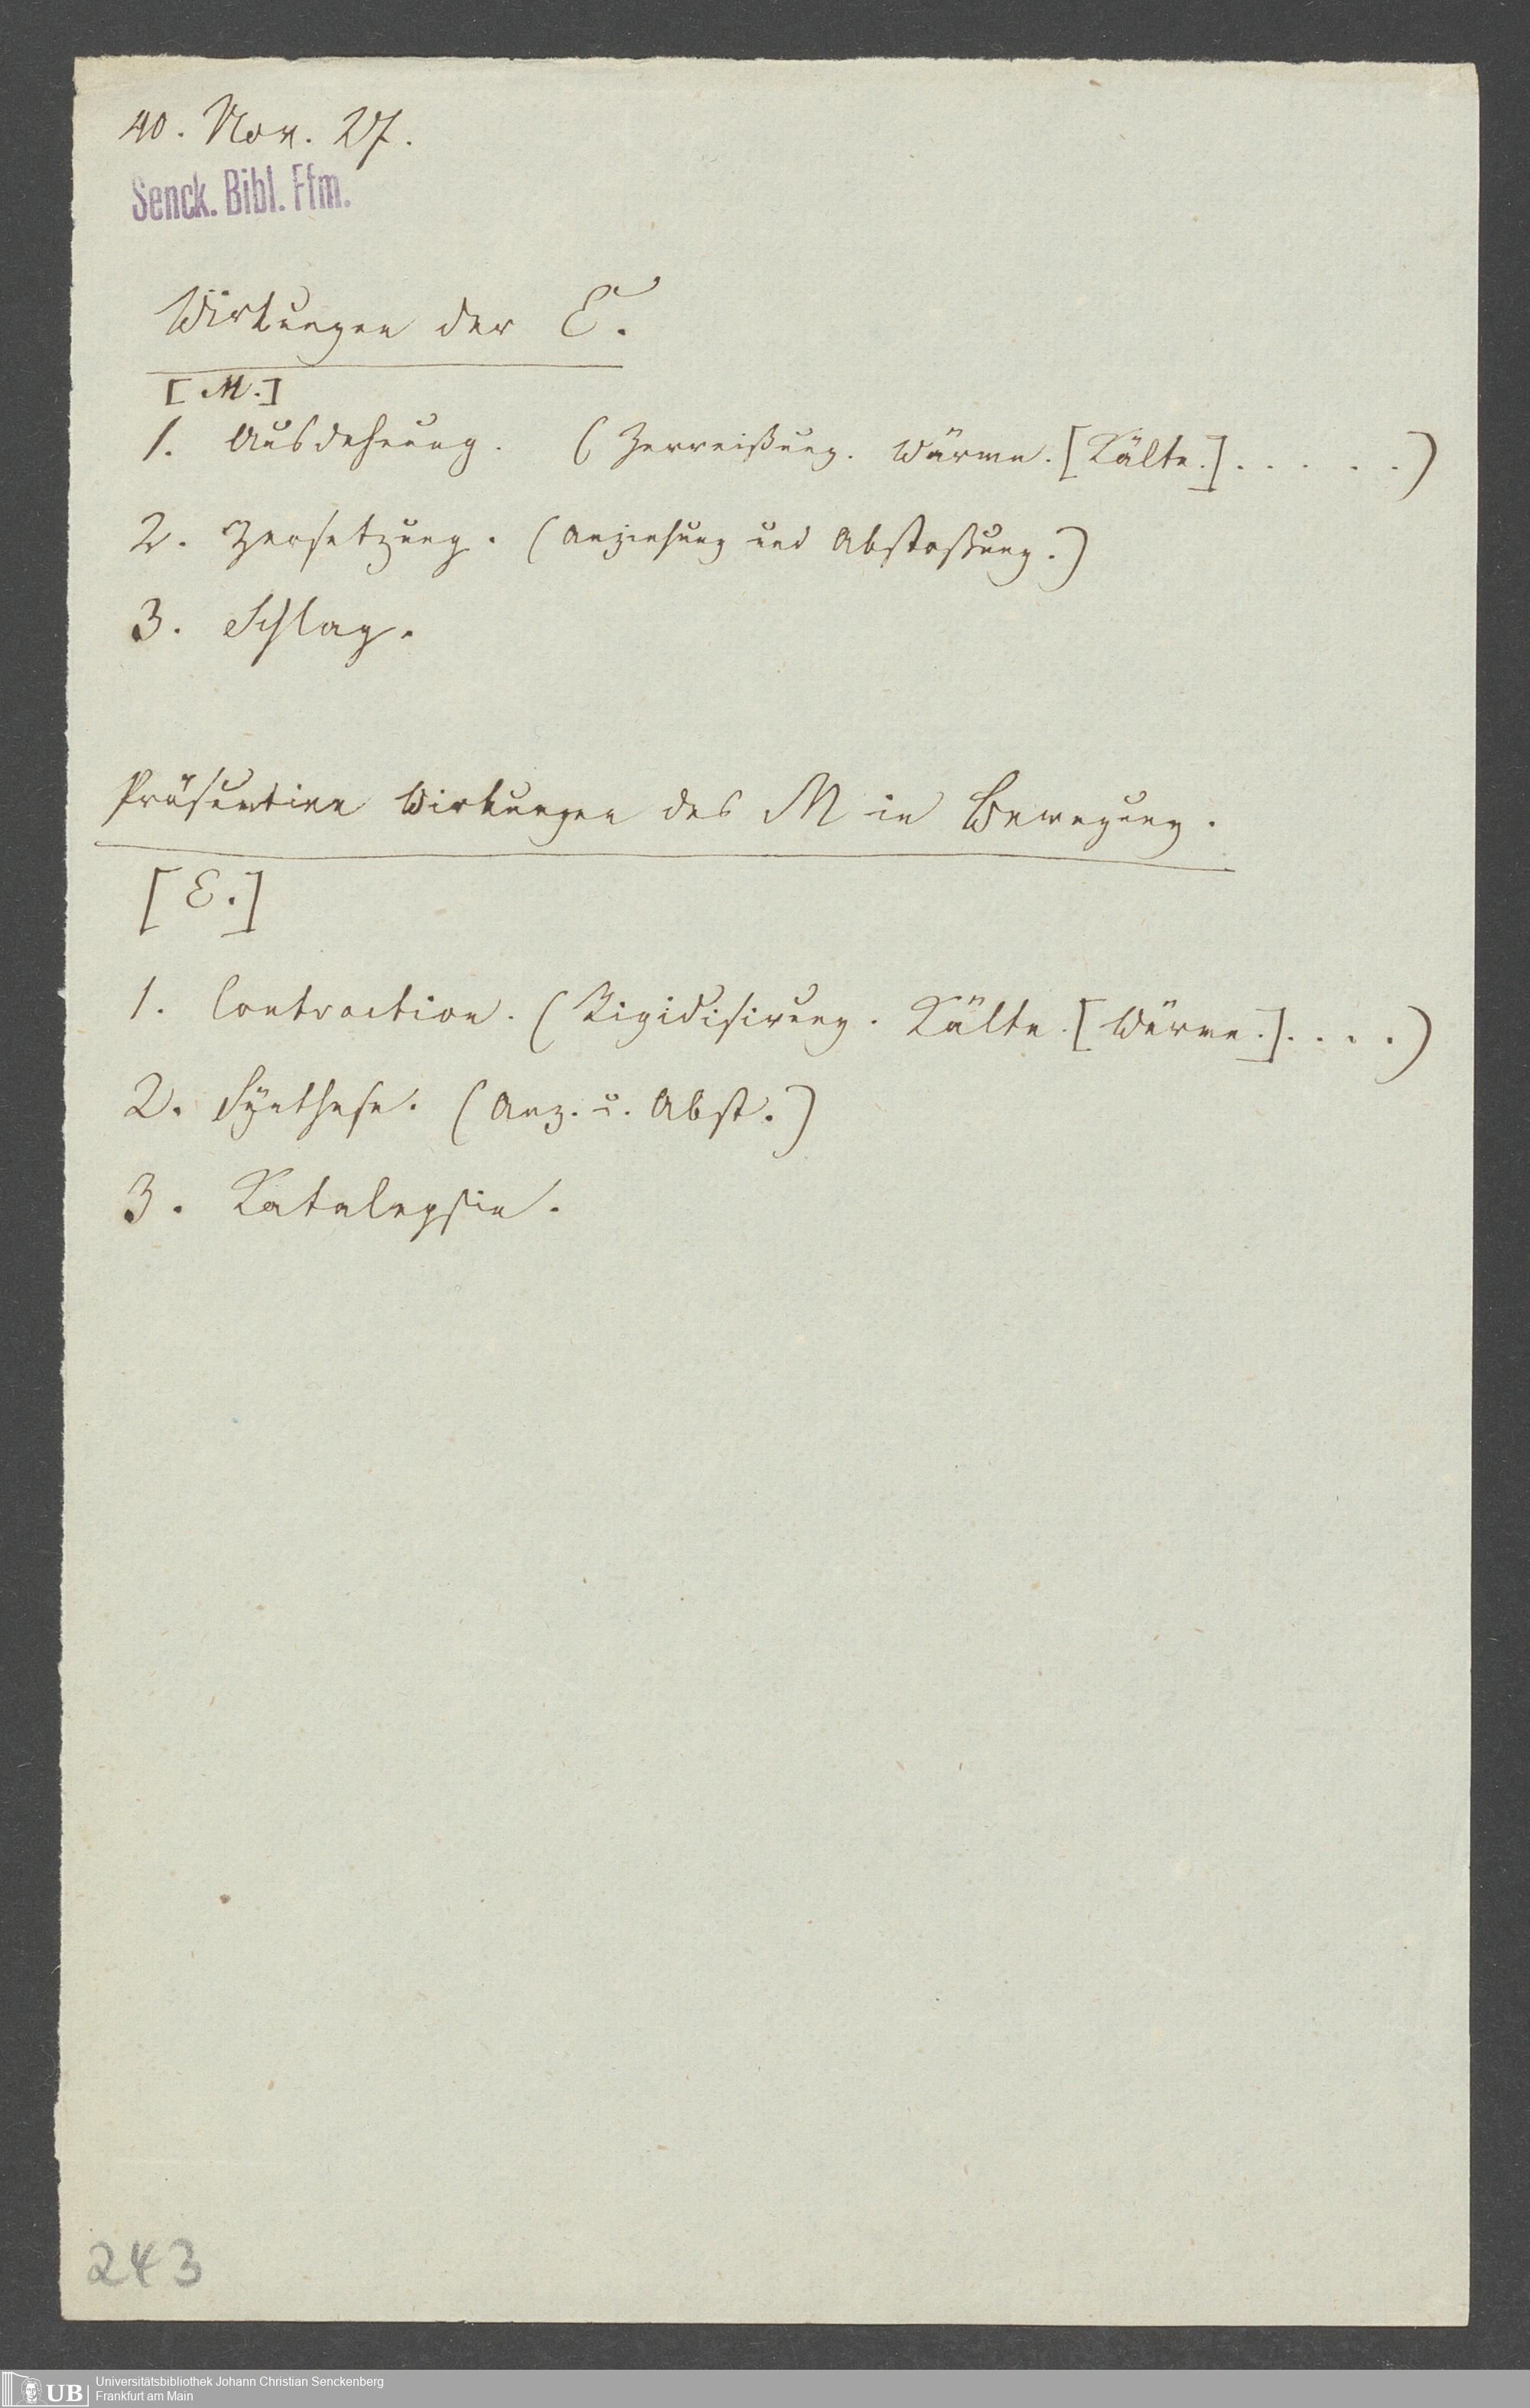 40. Nov. 27.
Senck. Bibl. Ffm.
Wirkungen der E.
[M.]
1. Ausdehnung. (Zerreißung. Wärme. [Kälte.] . . . . .)
2. Zersetzung. (Anziehung und Abstoßung.)
3. Schlag.
Präsumtive Wirkungen des M in Bewegung.
[E.]
1. Contraction. (Rigidisirung. Kälte. [Wärme.] . . . .)
2. Synthese. (Anz. u. Abst.)
3. Katalepsie.
243
UB
Universitätsbibliothek Johann Christian Senckenberg
Frankfurt am Main